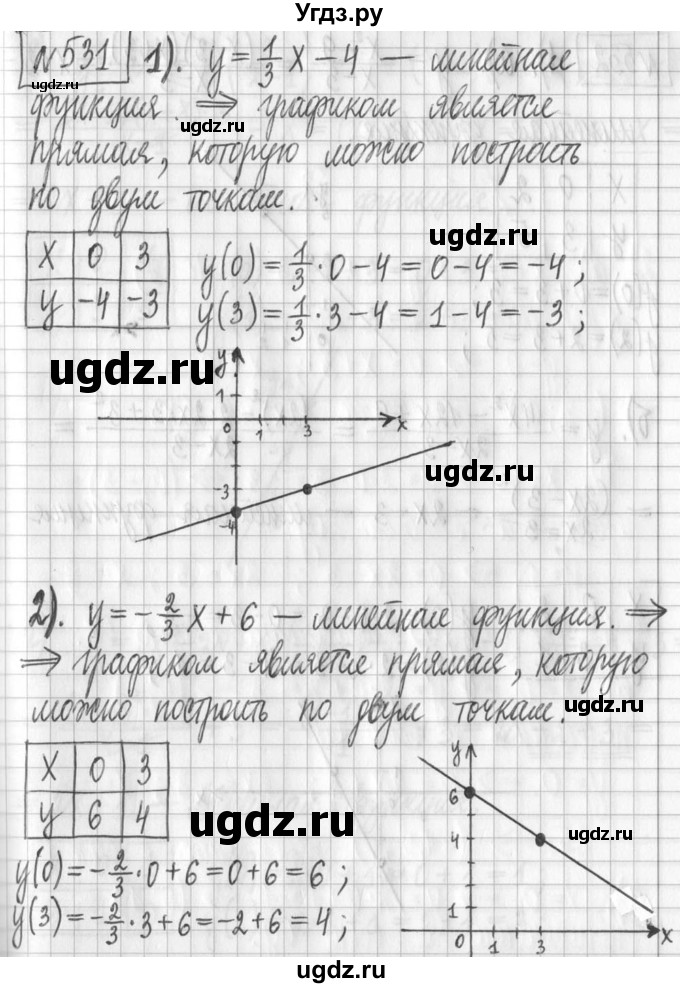 Угдз.ру
№531 1). y = 1/3 x − 4 — линейная
функция. ⇒ графиком является
ugdz.ru
прямая, которую можно построить
по двум точкам.
ugdz.ru
x 0 3
y −4 −3
y(0) = 1/3 · 0 − 4 = 0 − 4 = −4 ;
y(3) = 1/3 · 3 − 4 = 1 − 4 = −3 ;
ugdz.ru
y
1
0 1 3 x
ugdz.ru
−3
−4
2). y = −2/3 x + 6 — линейная функция. ⇒
⇒ графиком является прямая, которую
ugdz.ru
можно построить по двум точкам.
x 0 3
y 6 4
ugdz.ru
y
6
4
ugdz.ru
1
0 1 3 x
y(0) = −2/3 · 0 + 6 = 0 + 6 = 6 ;
y(3) = −2/3 · 3 + 6 = −2 + 6 = 4 ;
ugdz.ru